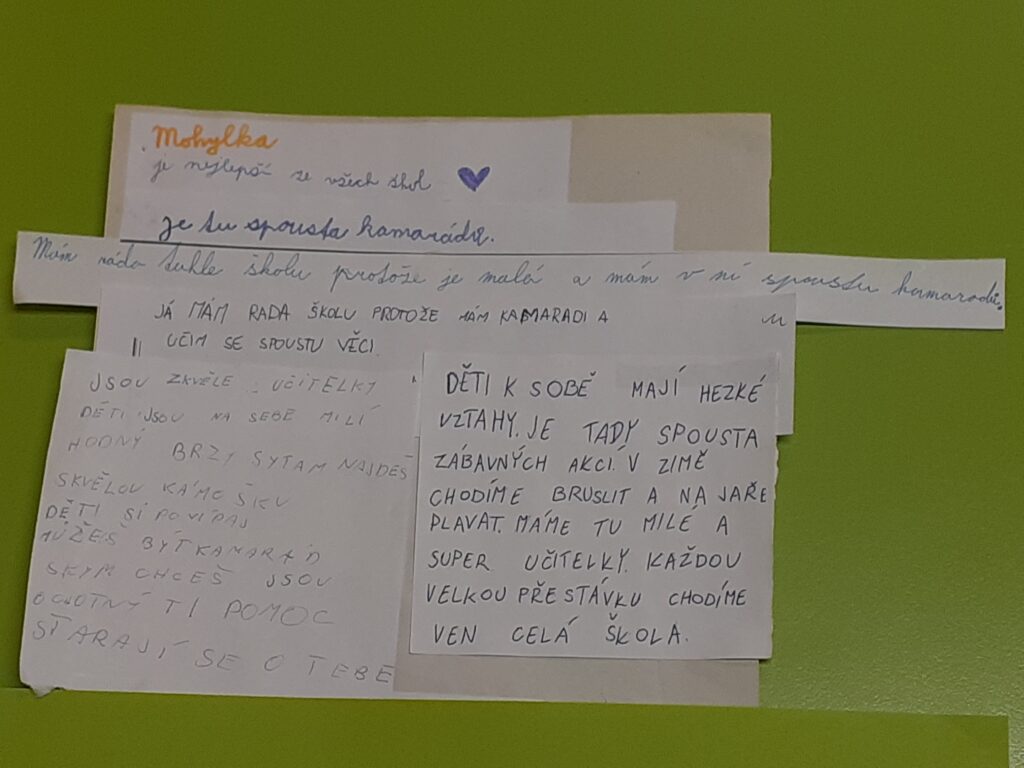 Mohylka
je nejlepší ze všech škol
je tu spousta kamarádů.
Mám ráda tuhle školu protože je malá a mám v ní spoustu kamaradů.
JÁ MÁM RADA ŠKOLU PROTOŽE MÁM KAMARADI A
UČIM SE SPOUSTU VĚCI
JSOU ZKVĚLE UČITELKY
DĚTI JSOU NA SEBE MILÍ
HODNÝ BRZY SYTAM NAJDEŠ
SKVĚLOU KÁMOŠKU
DĚTI SI POVÍDAJ
MŮŽEŠ BÝT KAMARÁD
SKYM CHCEŠ JSOU
OCHOTNÝ TI POMOC
STARAJÍ SE O TEBE
DĚTI K SOBĚ MAJÍ HEZKÉ
VZTAHY. JE TADY SPOUSTA
ZÁBAVNÝCH AKCÍ. V ZIMĚ
CHODÍME BRUSLIT A NA JAŘE
PLAVAT. MÁME TU MILÉ A
SUPER UČITELKY. KAŽDOU
VELKOU PŘESTÁVKU CHODÍME
VEN CELÁ ŠKOLA.